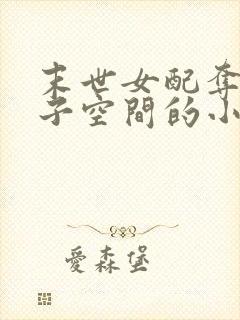 末世女配奪
子空間的小
愛森堡